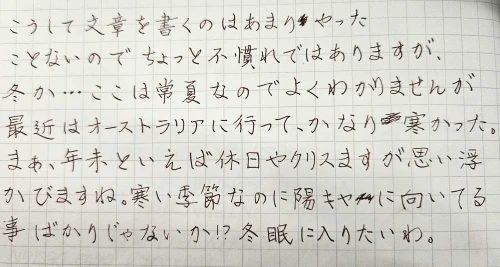 こうして文章を書くのはあまりやった
ことないのでちょっと不慣れではありますが、
冬か…ここは常夏なのでよくわかりませんが
最近はオーストラリアに行って、かなり寒かった。
まぁ、年末といえば休日やクリスますが思い浮
かびますね。寒い季節なのに陽キャに向いてる
事ばかりじゃないか!?冬眠に入りたいわ。